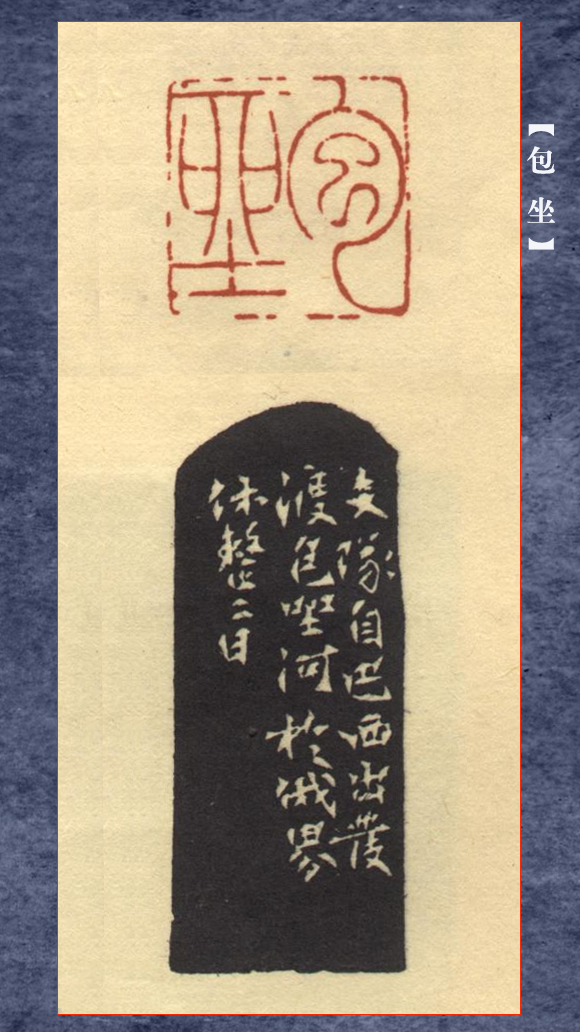 【包 坐】
包坐
支隊自巴西出發
渡包坐河於俄界
休整二日